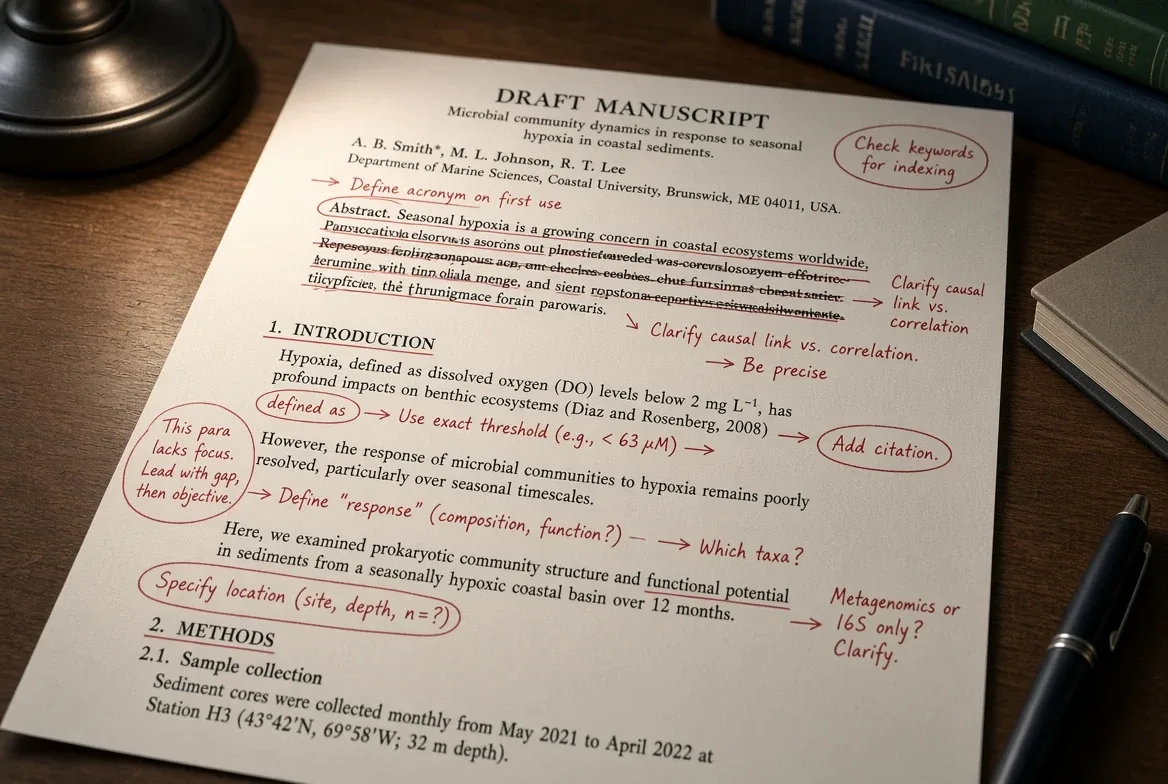 DRAFT MANUSCRIPT
Microbial community dynamics in response to seasonal
hypoxia in coastal sediments.
Check keywords
for indexing
A. B. Smith*, M. L. Johnson, R. T. Lee
Department of Marine Sciences, Coastal University, Brunswick, ME 04011, USA.
→ Define acronym on first use
Abstract. Seasonal hypoxia is a growing concern in coastal ecosystems worldwide,
with
menge, and sient
the
forain parowaris.
→ Clarify causal
link vs.
correlation
↘ Clarify causal link vs. correlation.
→ Be precise
1. INTRODUCTION
Hypoxia, defined as dissolved oxygen (DO) levels below 2 mg L⁻¹, has
profound impacts on benthic ecosystems (Diaz and Rosenberg, 2008) → Add citation.
defined as → Use exact threshold (e.g., < 63 µM) →
This para
lacks focus.
Lead with gap,
then objective.
However, the response of microbial communities to hypoxia remains poorly
resolved, particularly over seasonal timescales.
→ Define "response" (composition, function?) — → Which taxa?
Here, we examined prokaryotic community structure and functional potential
in sediments from a seasonally hypoxic coastal basin over 12 months.
→ Metagenomics or
16S only?
Clarify.
Specify location (site, depth, n=?)
2. METHODS
2.1. Sample collection
Sediment cores were collected monthly from May 2021 to April 2022 at
Station H3 (43°42'N, 69°58'W; 32 m depth).